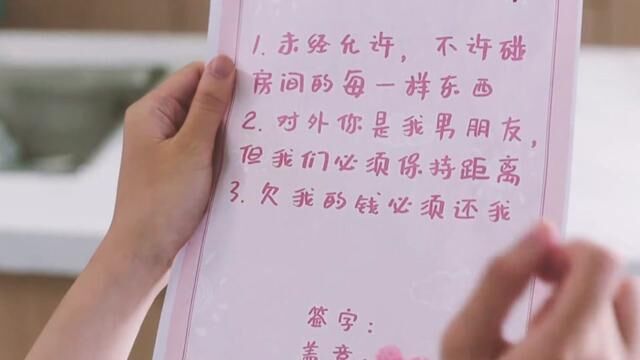 1. 未经允许，不许碰
房间的每一样东西
2. 对外你是我男朋友，
但我们必须保持距离
3. 欠我的钱必须还我
签字：
盖章：